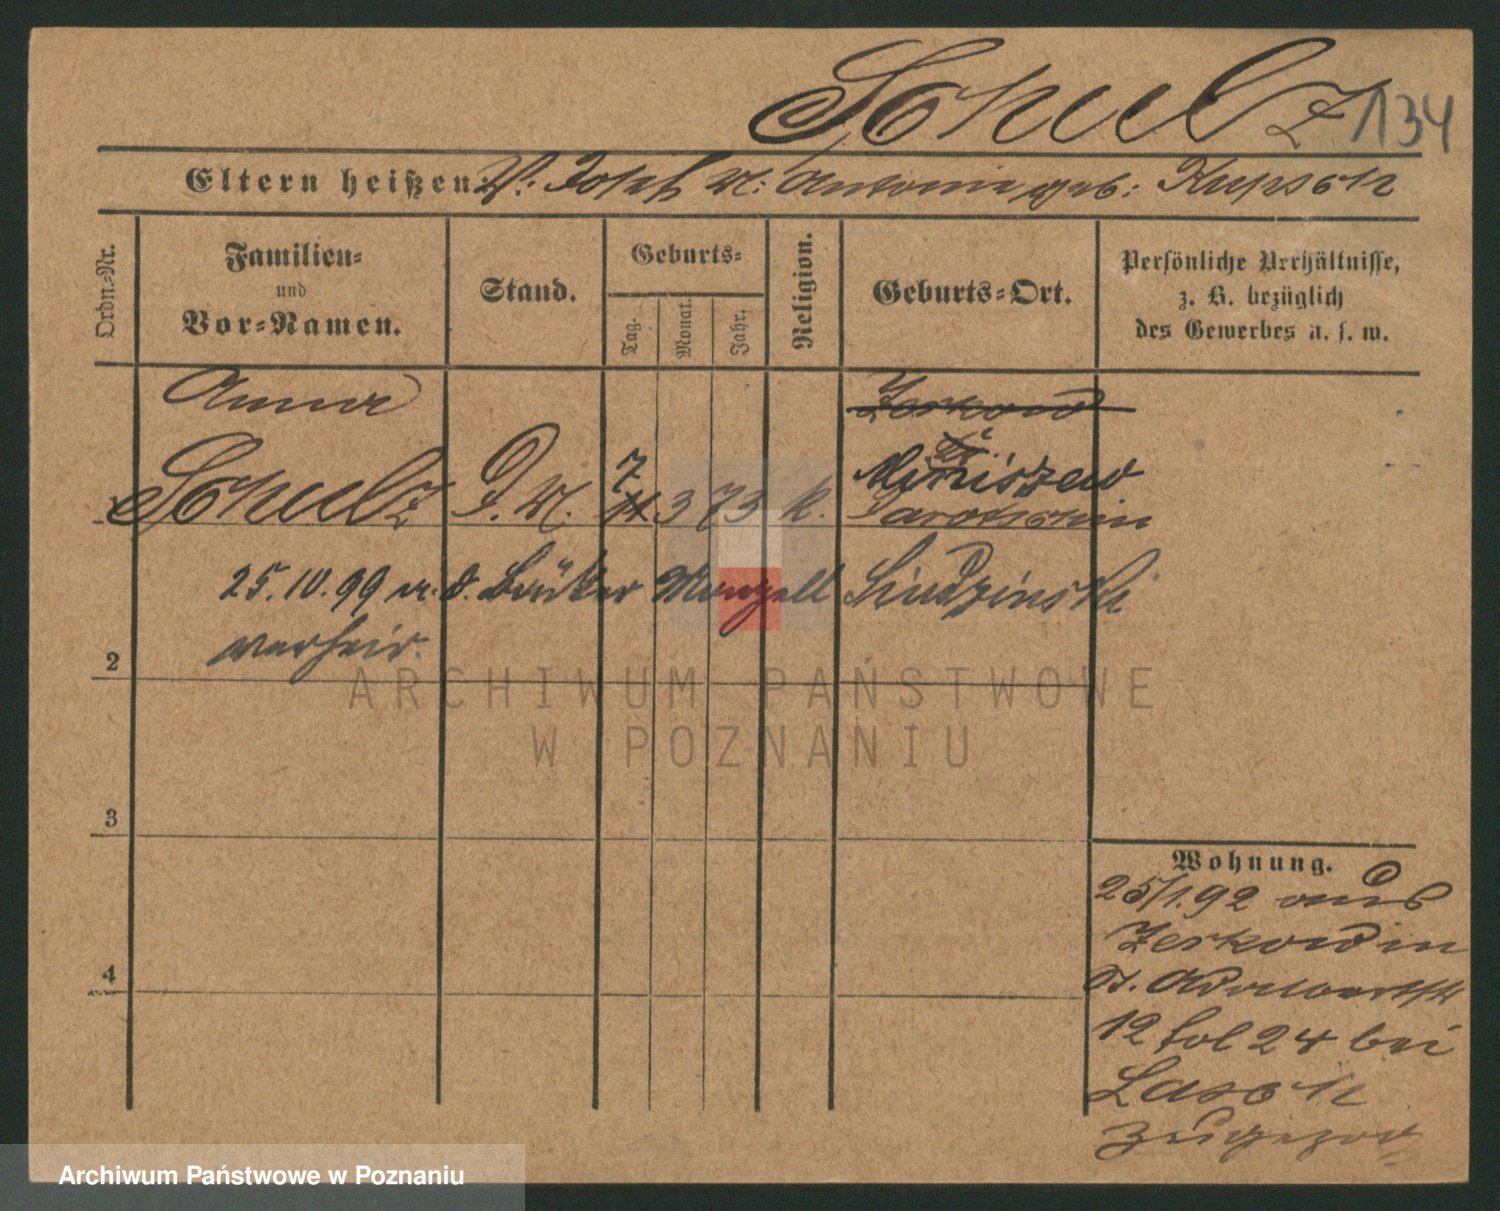 Schulz 134
Eltern heißen: V. Josef M. Antonie geb: Kupsch
Ordn.-Nr.
Familien-
und
Vor-Namen.
Stand.
Geburts-
Tag.
Monat.
Jahr.
Religion.
Geburts-Ort.
Persönliche Verhältnisse,
z. B. bezüglich
des Gewerbes u. s. w.
Anna
Schulz D. M. 7 3 73 k.
Zerkow
Miniszew
Jarotschin
25.10.99 m. d. Marzell Sindzinski
verheir.
2
3
4
Wohnung.
25/1.92 aus
Zerkow in
St. Adalbertstr
12 fol 24 bei
Lasch
zugezog
ARCHIWUM PAŃSTWOWE
W POZNANIU
Archiwum Państwowe w Poznaniu